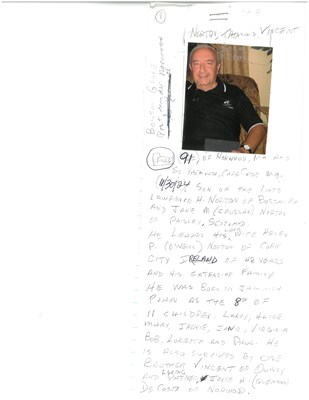 ①
NORTON, THOMAS VINCENT
BOSTON GLOBE
91, OF NORWOOD, MA AND
SO YARMOUTH, CAPE CODE MA
11/30/24. SON OF THE LATE
LAWRENCE H. NORTON OF BOSTON, MA
AND JANE M. NORTON
OF PAISLEY, SCOTLAND
HE LEAVES HIS WIFE HELEN
P. (O'NEILL) NORTON OF CORK
CITY IRELAND OF 48 YEARS
AND HIS EXTENSIVE FAMILY
HE WAS BORN IN JAMAICA
PLAIN AS THE 8TH OF
11 CHILDREN. LARRY,
MARY, JACKIE, JANE, VIRGINIA
BOB, LORETTA AND PAUL. HE
IS ALSO SURVIVED BY ONE
BROTHER VINCENT OF
AND JANET H.
DE COSTA OF NORWOOD.